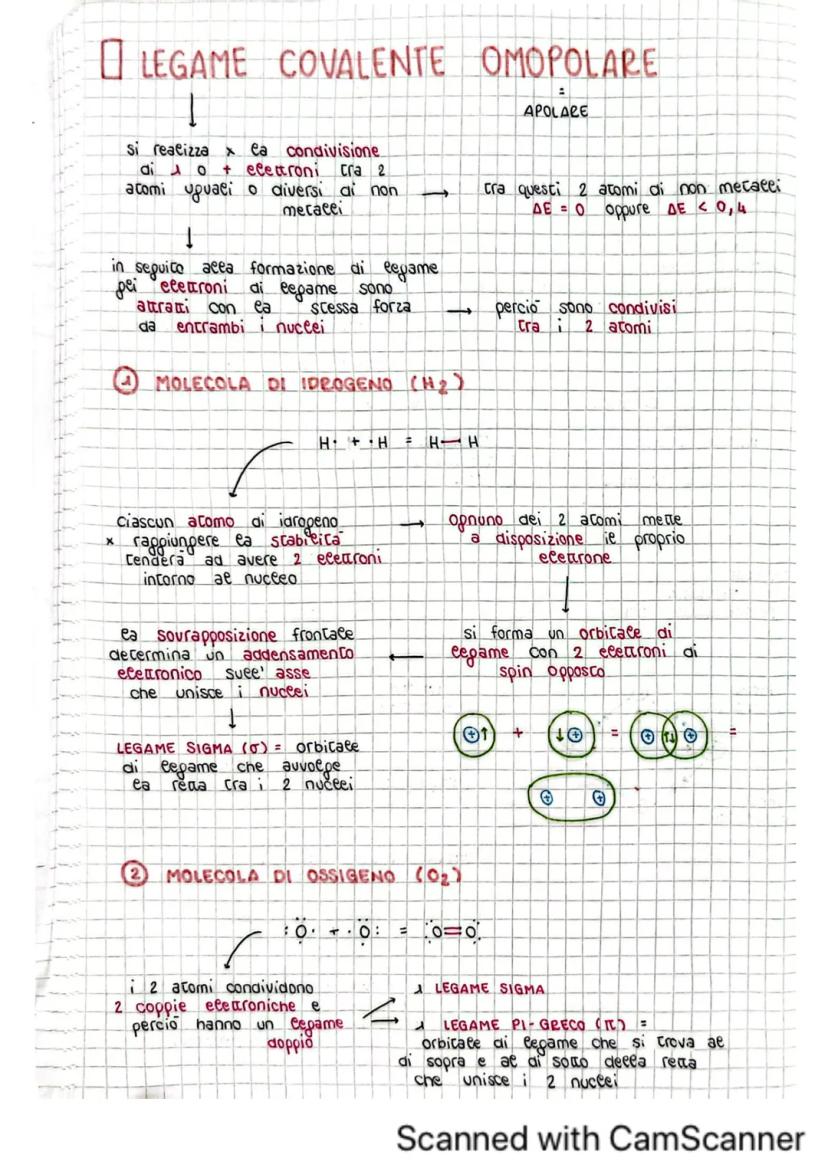 LEGAME COVALENTE OMOPOLARE
=
APOLARE
si realizza x la condivisione
di 1 o + elettroni tra 2
atomi uguali o diversi di non
metalli
→ tra questi 2 atomi di non metalli
ΔE = 0 oppure ΔE < 0,4
in seguito alla formazione di legame
gli elettroni di legame sono
attratti con la stessa forza
da entrambi i nuclei
→ perciò sono condivisi
tra i 2 atomi
① MOLECOLA DI IDROGENO (H2)
H· + ·H = H—H
ciascun atomo di idrogeno
x raggiungere la stabilità
tenderà ad avere 2 elettroni
intorno al nucleo
→ ognuno dei 2 atomi mette
a disposizione il proprio
elettrone
si forma un orbitale di
legame con 2 elettroni di
spin opposto
la sovrapposizione frontale
determina un addensamento
elettronico sull'asse
che unisce i nuclei
LEGAME SIGMA (σ) = orbitale
di legame che avvolge
la retta tra i 2 nuclei
+ ↑ + ↓ + = + ↑↓ + =
+ +
② MOLECOLA DI OSSIGENO (O2)
:Ö· + ·Ö: = :O=O:
i 2 atomi condividono
2 coppie elettroniche e
perciò hanno un legame
doppio
1 LEGAME SIGMA
1 LEGAME PI-GRECO (π) =
orbitale di legame che si trova al
di sopra e al di sotto della retta
che unisce i 2 nuclei
Scanned with CamScanner